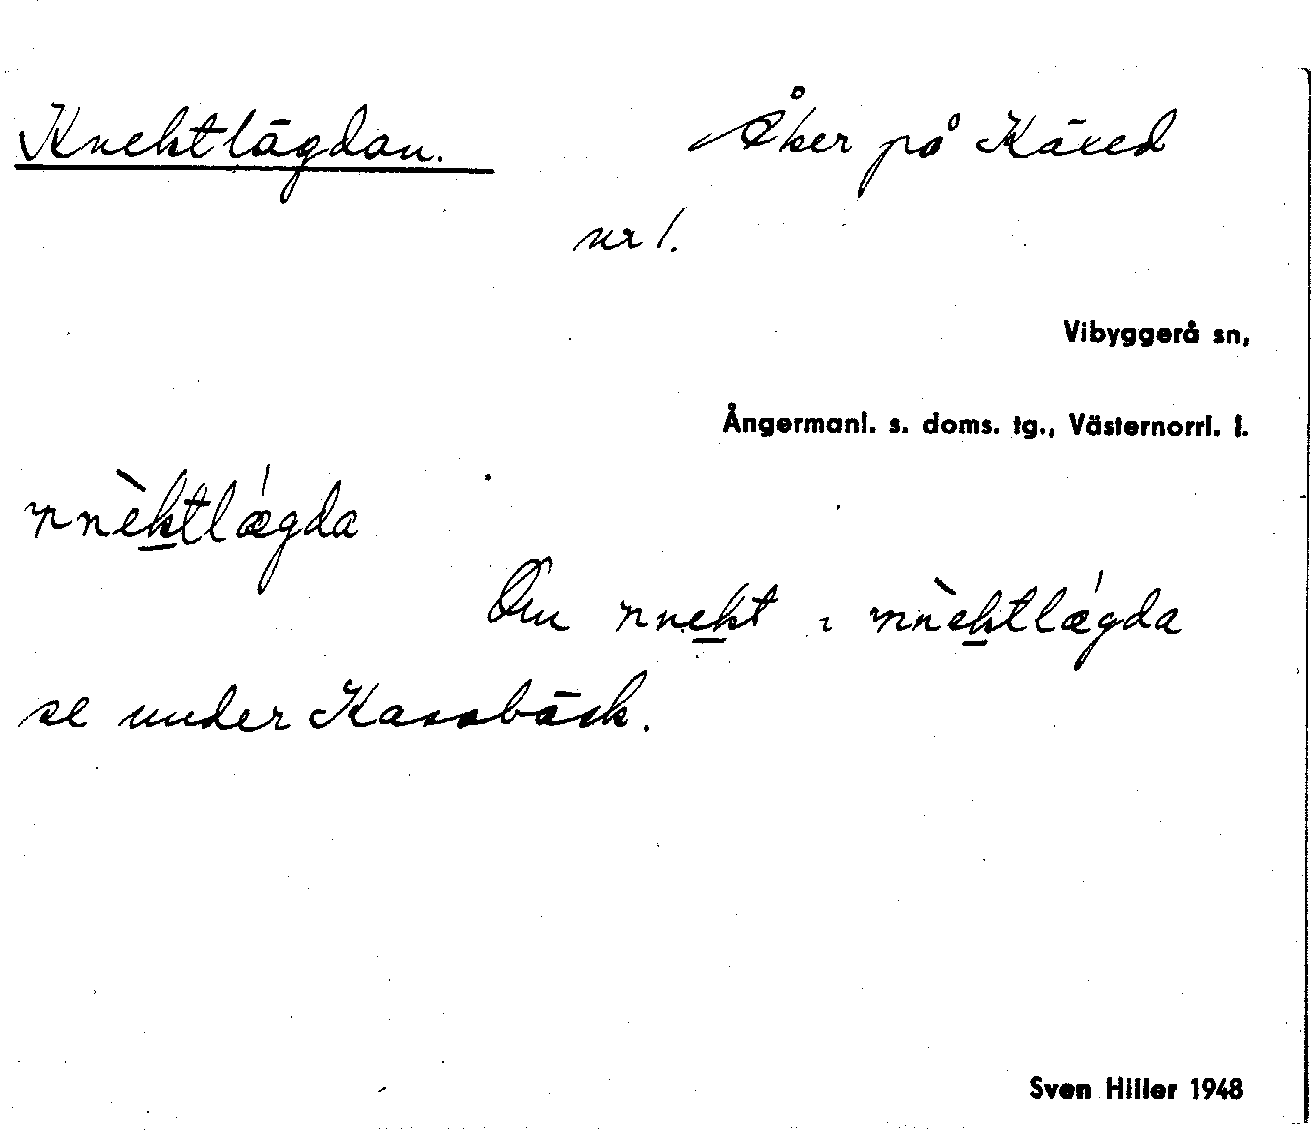 Knektlägdan. Åker på Käxed
nr 1.
Vibyggerå sn,
Ångermanl. s. doms. tg., Västernorrl. l.
nnèktlǽgda
Om nnekt i nnèktlǽgda
se under Kassbäck.
Sven Hiller 1948